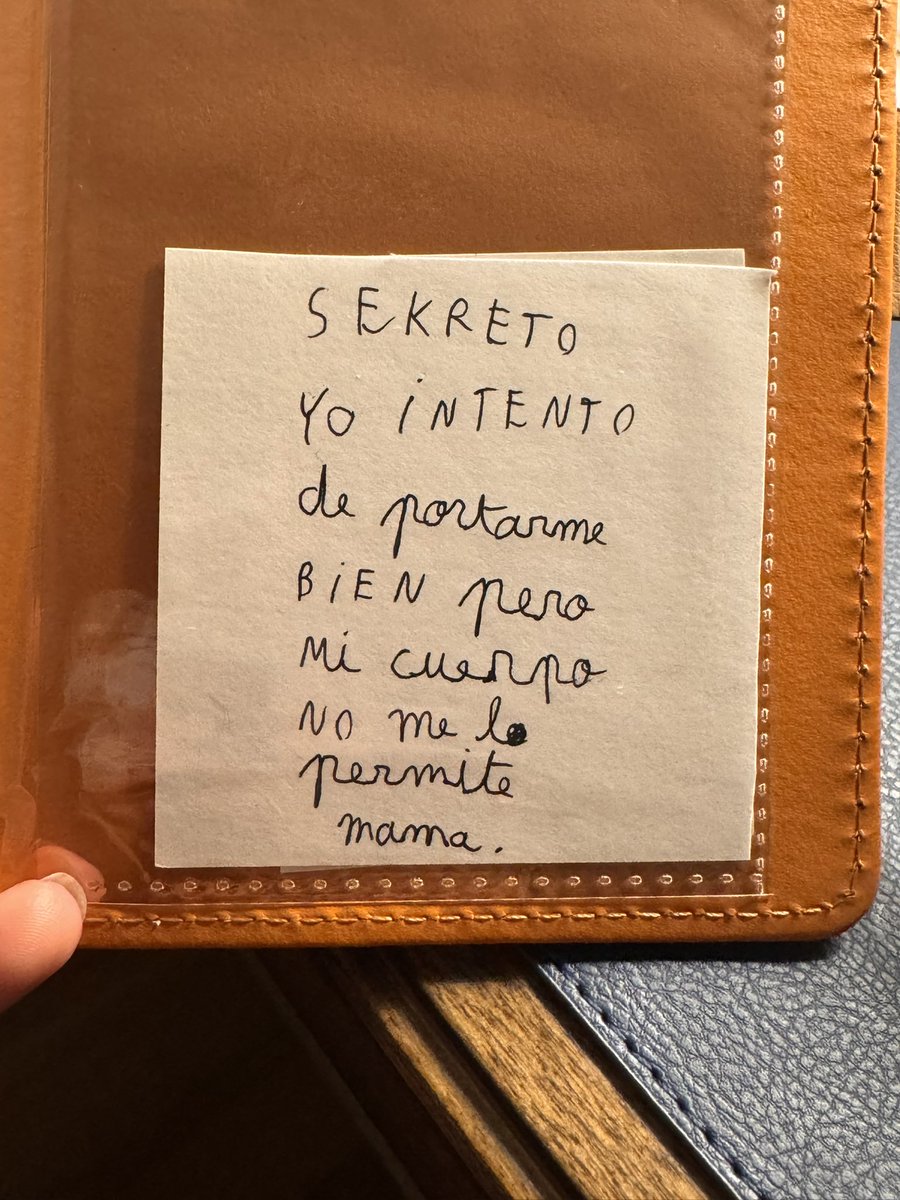 SEKRETO
YO iNTENTO
de portarme
BiEN pero
Mi cuerpo
NO me lo
permite
mama.